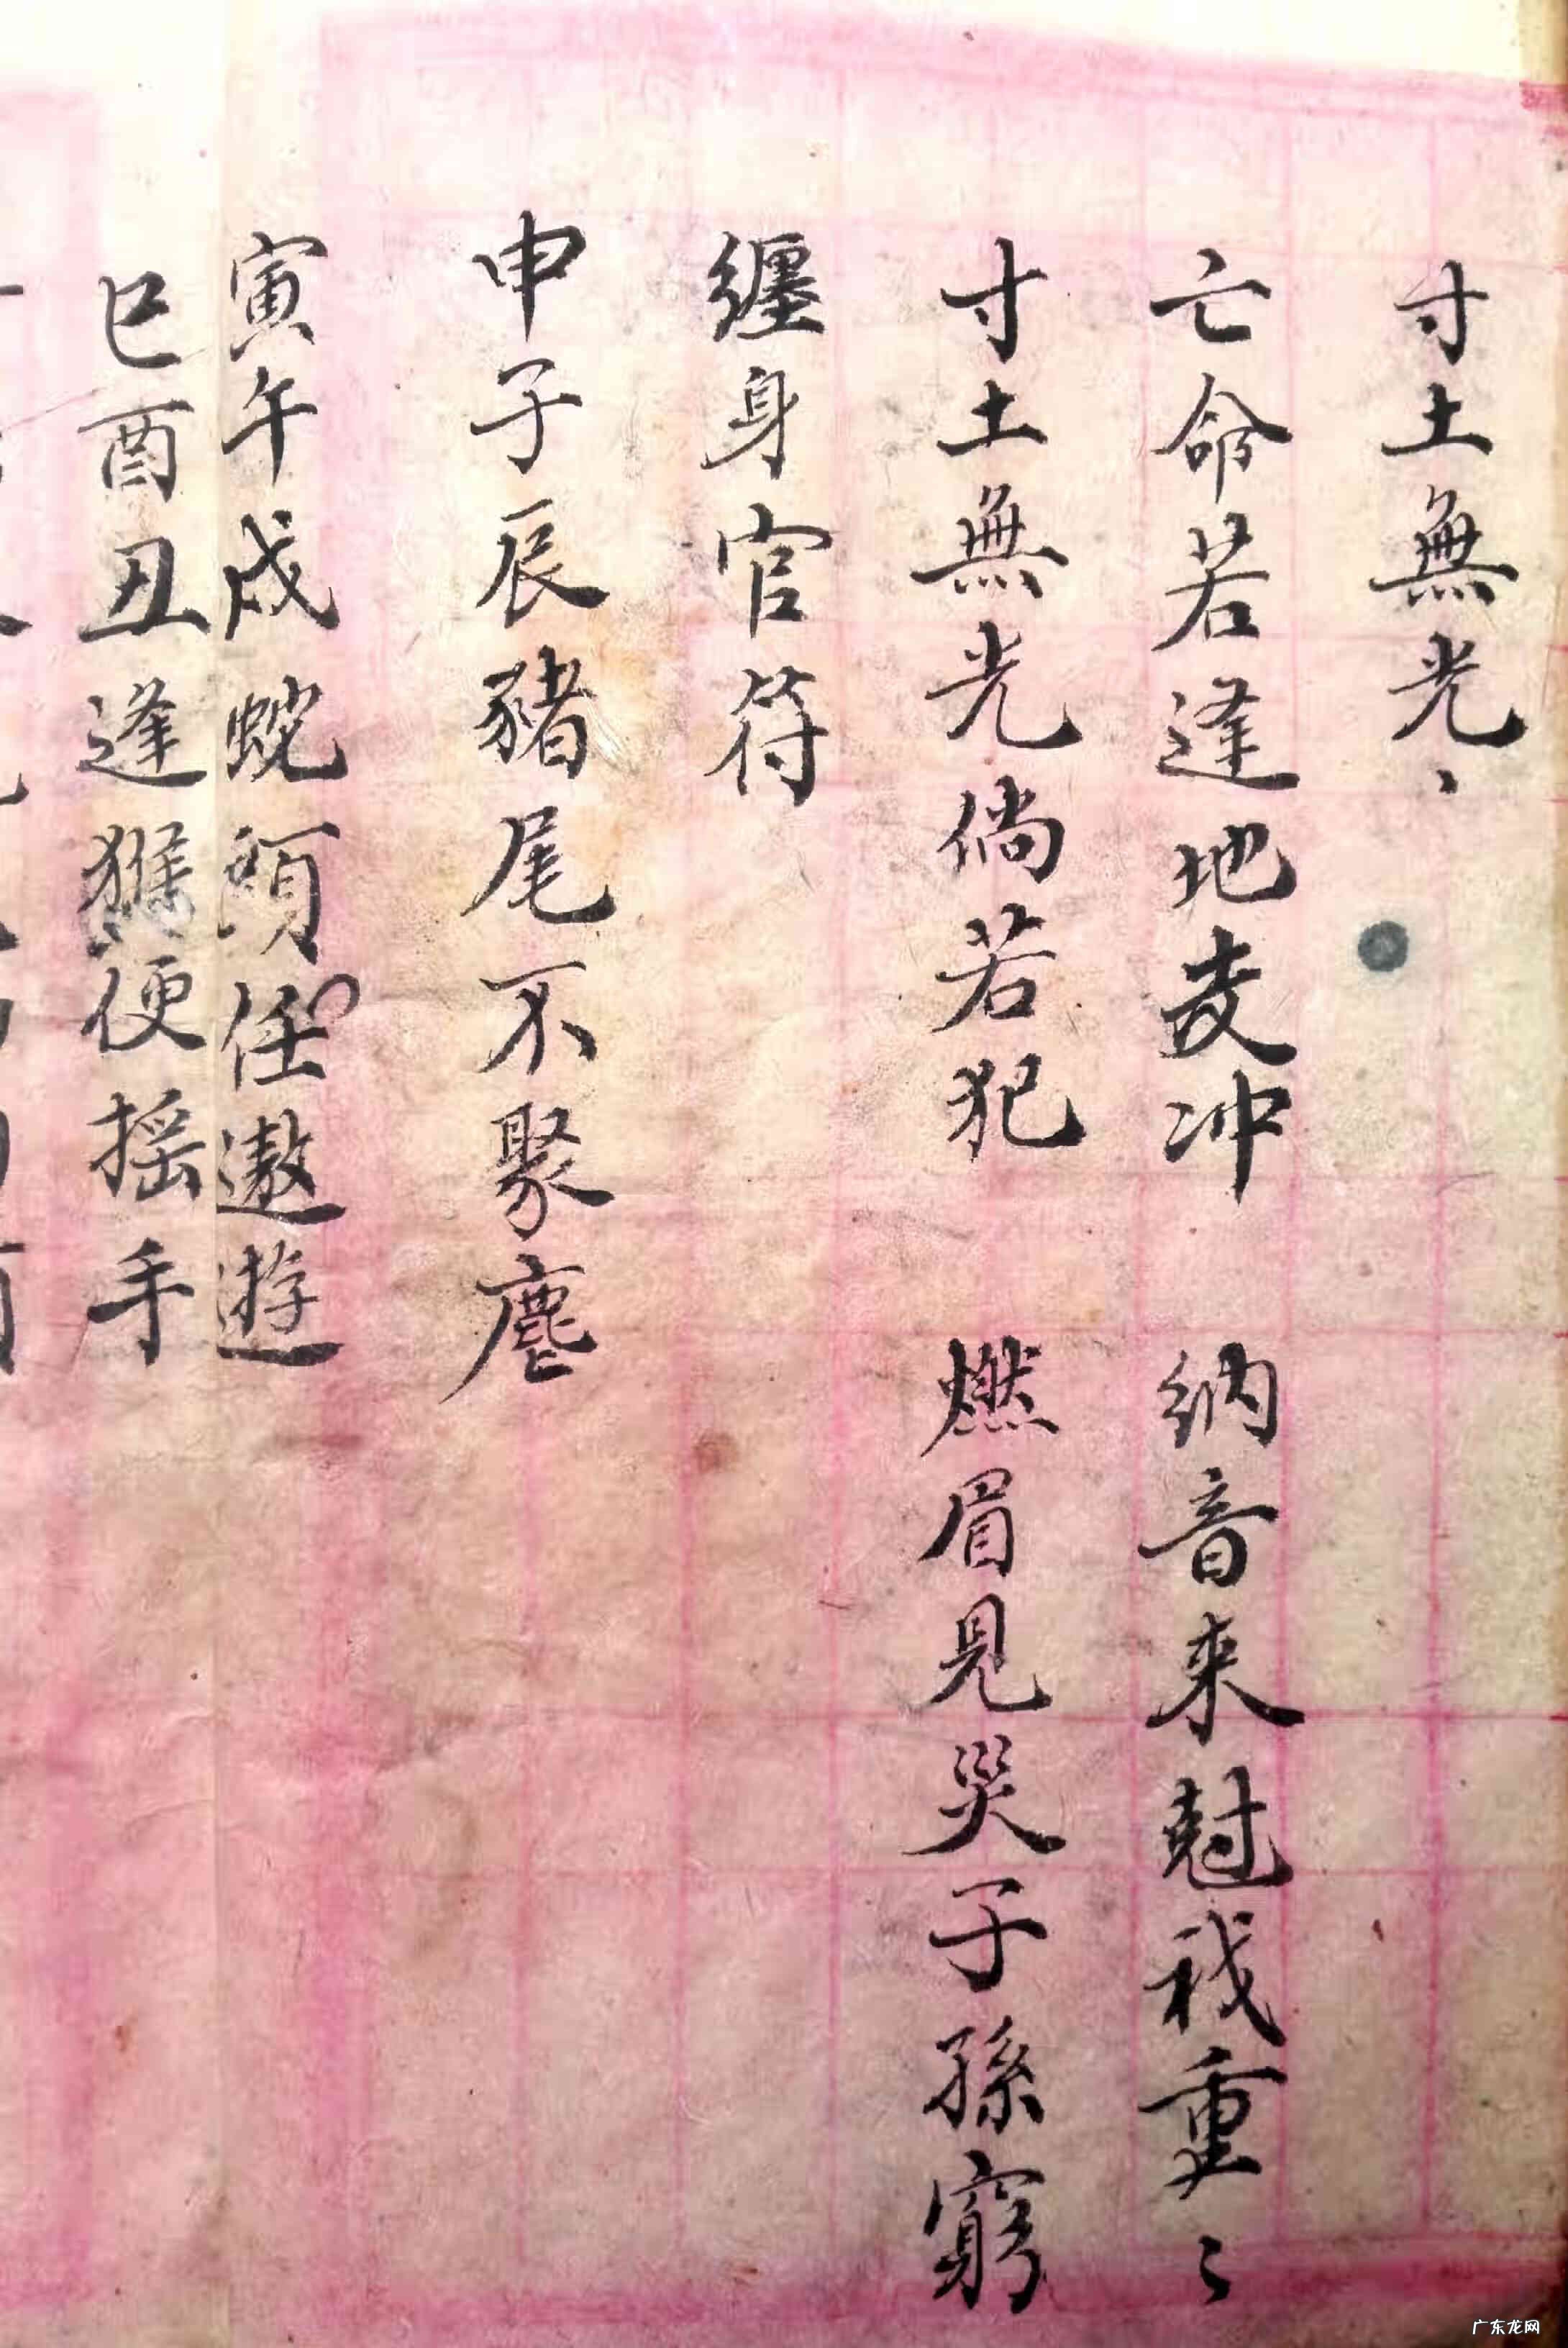 寸土無光、
亡命若逢地支冲 納音来尅我重〻
寸土無光倘若犯 燃眉見哭子孫窮
纏身官符
申子辰豬尾不聚塵
寅午戌蛇頭任遨遊
巳酉丑逢猴便摇手
广东龙网